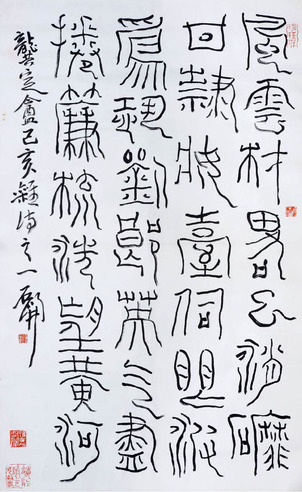 風雲材畧已消磨
甘隸妝臺伺眼波
爲恐劉郎英气盡
捲簾梳洗望黃河
龔定盦己亥雜詩之一